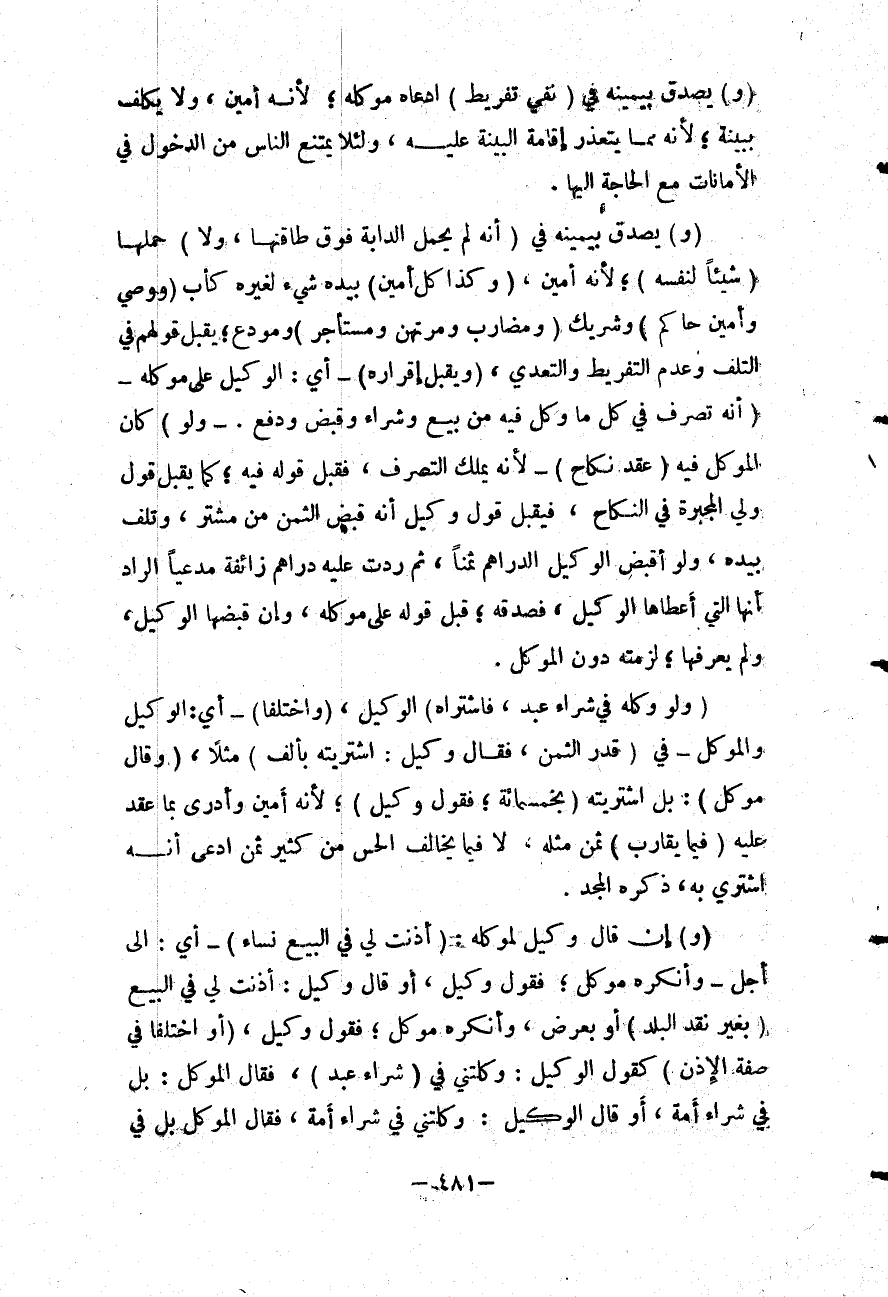 (و) يصدق بيمينه في ( نفي تفريط ) ادعاه موكله ؛ لأنــه أمين ، ولا يكلف
ببينة ؛ لأنه مما يتعذر إقامة البينة عليــــه ، ولئلا يمتنع الناس من الدخول في
الأمانات مع الحاجة اليها .
(و) يصدق بيمينه في ( أنه لم يحمل الدابة فوق طاقتهـا ، ولا ) حملهـا
( شيئاً لنفسه ) ؛ لأنه أمين ، ( وكذا كل أمين) بيده شيء لغيره كأب (ووصي
وأمين حاكم ) وشريك ( ومضارب ومرتهن ومستأجر )ومودع؛ يقبل قولهم في
التلف وعدم التفريط والتعدي ، (ويقبل إقراره) – أي : الوكيل على موكله –
( أنه تصرف في كل ما وكل فيه من بيع وشراء وقبض ودفع . – ولو ) كان
الموكل فيه ( عقد نكاح ) – لأنه يملك التصرف ، فقبل قوله فيه ؛ كما يقبل قول
ولي المجبرة في النكاح ، فيقبل قول وكيل أنه قبض الثمن من مشتر ، وتلف
بيده ، ولو أقبض الوكيل الدراهم ثمناً ، ثم ردت عليه دراهم زائفة مدعياً الراد
أنها التي أعطاها الوكيل ، فصدقه ؛ قبل قوله على موكله ، وإن قبضها الوكيل،
ولم يعرفها ؛ لزمته دون الموكل .
( ولو وكله في شراء عبد ، فاشتراه) الوكيل ، (واختلفا) – أي: الوكيل
والموكل – في ( قدر الثمن ، فقــال وكيل : اشتريته بألف ) مثلًا ، ( وقال
موكل ) : بل اشتريته ( بخمسمائة ؛ فقول وكيل ) ؛ لأنه أمين وأدرى بما عقد
عليه ( فيما يقارب ) ثمن مثله ، لا فيما يخالف الحس من كثير ثمن ادعى أنـــه
اشتري به، ذكره المجد .
(و) إن قال وكيل لموكله : ( أذنت لي في البيع نساء ) – أي : الى
أجل – وأنكره موكل ؛ فقول وكيل ، أو قال وكيل : أذنت لي في البيع
( بغير نقد البلد ) أو بعرض ، وأنكره موكل ؛ فقول وكيل ، (أو اختلفا في
صفة الإذن ) كقول الوكيل : وكلتني في ( شراء عبد ) ، فقال الموكل : بل
في شراء أمة ، أو قال الوكيل : وكلتني في شراء أمة ، فقال الموكل بل في
– ٤٨١ –